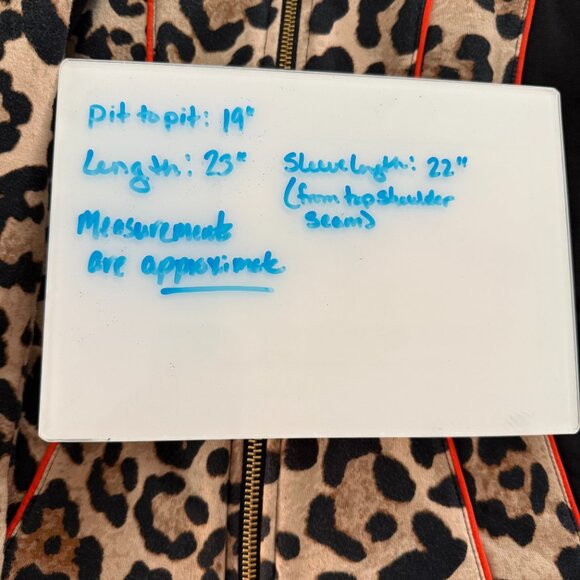 Pit to pit: 19"
Length: 25"
Sleeve length: 22"
(from top shoulder
seam)
Measurements
are approximate